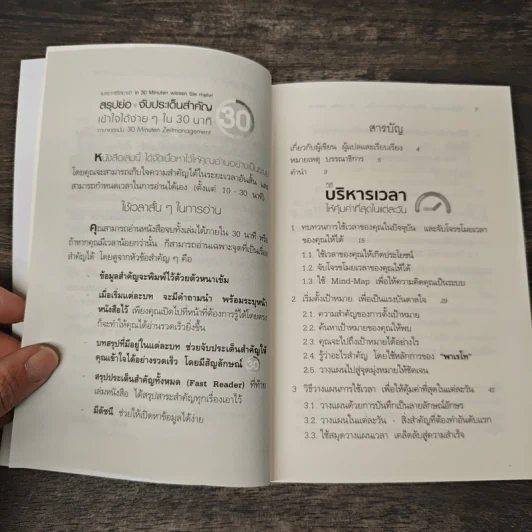 สรุปย่อ จับประเด็นสำคัญ
เข้าใจได้ง่าย ๆ ใน 30 นาที
30
ภาษาเยอรมัน 30 Minuten Zeitmanagement
หนังสือเล่มนี้ ได้จัดเนื้อหาให้คุณอ่านอย่างเป็นระบบ
โดยคุณจะสามารถเก็บใจความสำคัญได้ในระยะเวลาอันสั้น และ
สามารถกำหนดเวลาในการอ่านได้เอง (ตั้งแต่ 10 - 30 นาที)
ใช้เวลาสั้น ๆ ในการอ่าน
คุณสามารถอ่านหนังสือจบทั้งเล่มได้ภายใน 30 นาที หรือ
ถ้าหากคุณมีเวลาน้อยกว่านั้น ก็สามารถอ่านเฉพาะจุดที่เป็นเรื่อง
สำคัญได้ โดยดูจากหัวข้อสำคัญๆ คือ
· ข้อมูลสำคัญจะพิมพ์ไว้ด้วยตัวหนาเข้ม
· เมื่อเริ่มแต่ละบท จะมีคำถามนำ พร้อมระบุหน้า
หนังสือไว้ เพียงคุณเปิดไปที่หน้าที่ต้องการรู้ได้โดยตรง
ก็จะทำให้คุณได้อ่านรวดเร็วยิ่งขึ้น
· บทสรุปที่มีอยู่ในแต่ละบท ช่วยจับประเด็นสำคัญให้
คุณเข้าใจได้อย่างรวดเร็ว โดยมีสัญลักษณ์ 30
· สรุปประเด็นสำคัญทั้งหมด (Fast Reader) ที่ท้าย
เล่มหนังสือ ได้สรุปสาระสำคัญทุกเรื่องเอาไว้
· มีดัชนี ช่วยให้เปิดหาข้อมูลได้ง่าย
สารบัญ
เกี่ยวกับผู้เขียน ผู้แปลและเรียบเรียง 4
หมายเหตุ บรรณาธิการ 5
คำนำ 8
วิธี
บริหารเวลา
ให้คุ้มค่าที่สุดในแต่ละวัน
1 ทบทวนการใช้เวลาของคุณในปัจจุบัน และจับโจรขโมยเวลา
ของคุณให้ได้
1.1. ใช้เวลาของคุณให้เกิดประโยชน์
1.2. จับโจรขโมยเวลาของคุณให้ได้
1.3. ใช้ Mind-Map เพื่อให้ความคิดคุณเป็นระบบ
2 เริ่มตั้งเป้าหมาย เพื่อเป็นแรงบันดาลใจ 29
2.1. ความสำคัญของการตั้งเป้าหมาย
2.2. ค้นหาเป้าหมายของคุณให้พบ
2.3. คุณจะไปถึงเป้าหมายได้อย่างไร
2.4. รู้ว่าอะไรสำคัญ โดยใช้หลักการของ "พาเรโท"
2.5. วางแผนไปสู่จุดมุ่งหมายให้ชัดเจน
3 วิธีวางแผนการใช้เวลา เพื่อให้คุ้มค่าที่สุดในแต่ละวัน
3.1. วางแผนด้วยการบันทึกเป็นลายลักษณ์อักษร
3.2. วางแผนในแต่ละวัน - สิ่งสำคัญที่ต้องทำอันดับแรก
3.3. ใช้สมุดวางแผนเวลา เคล็ดลับสู่ความสำเร็จ